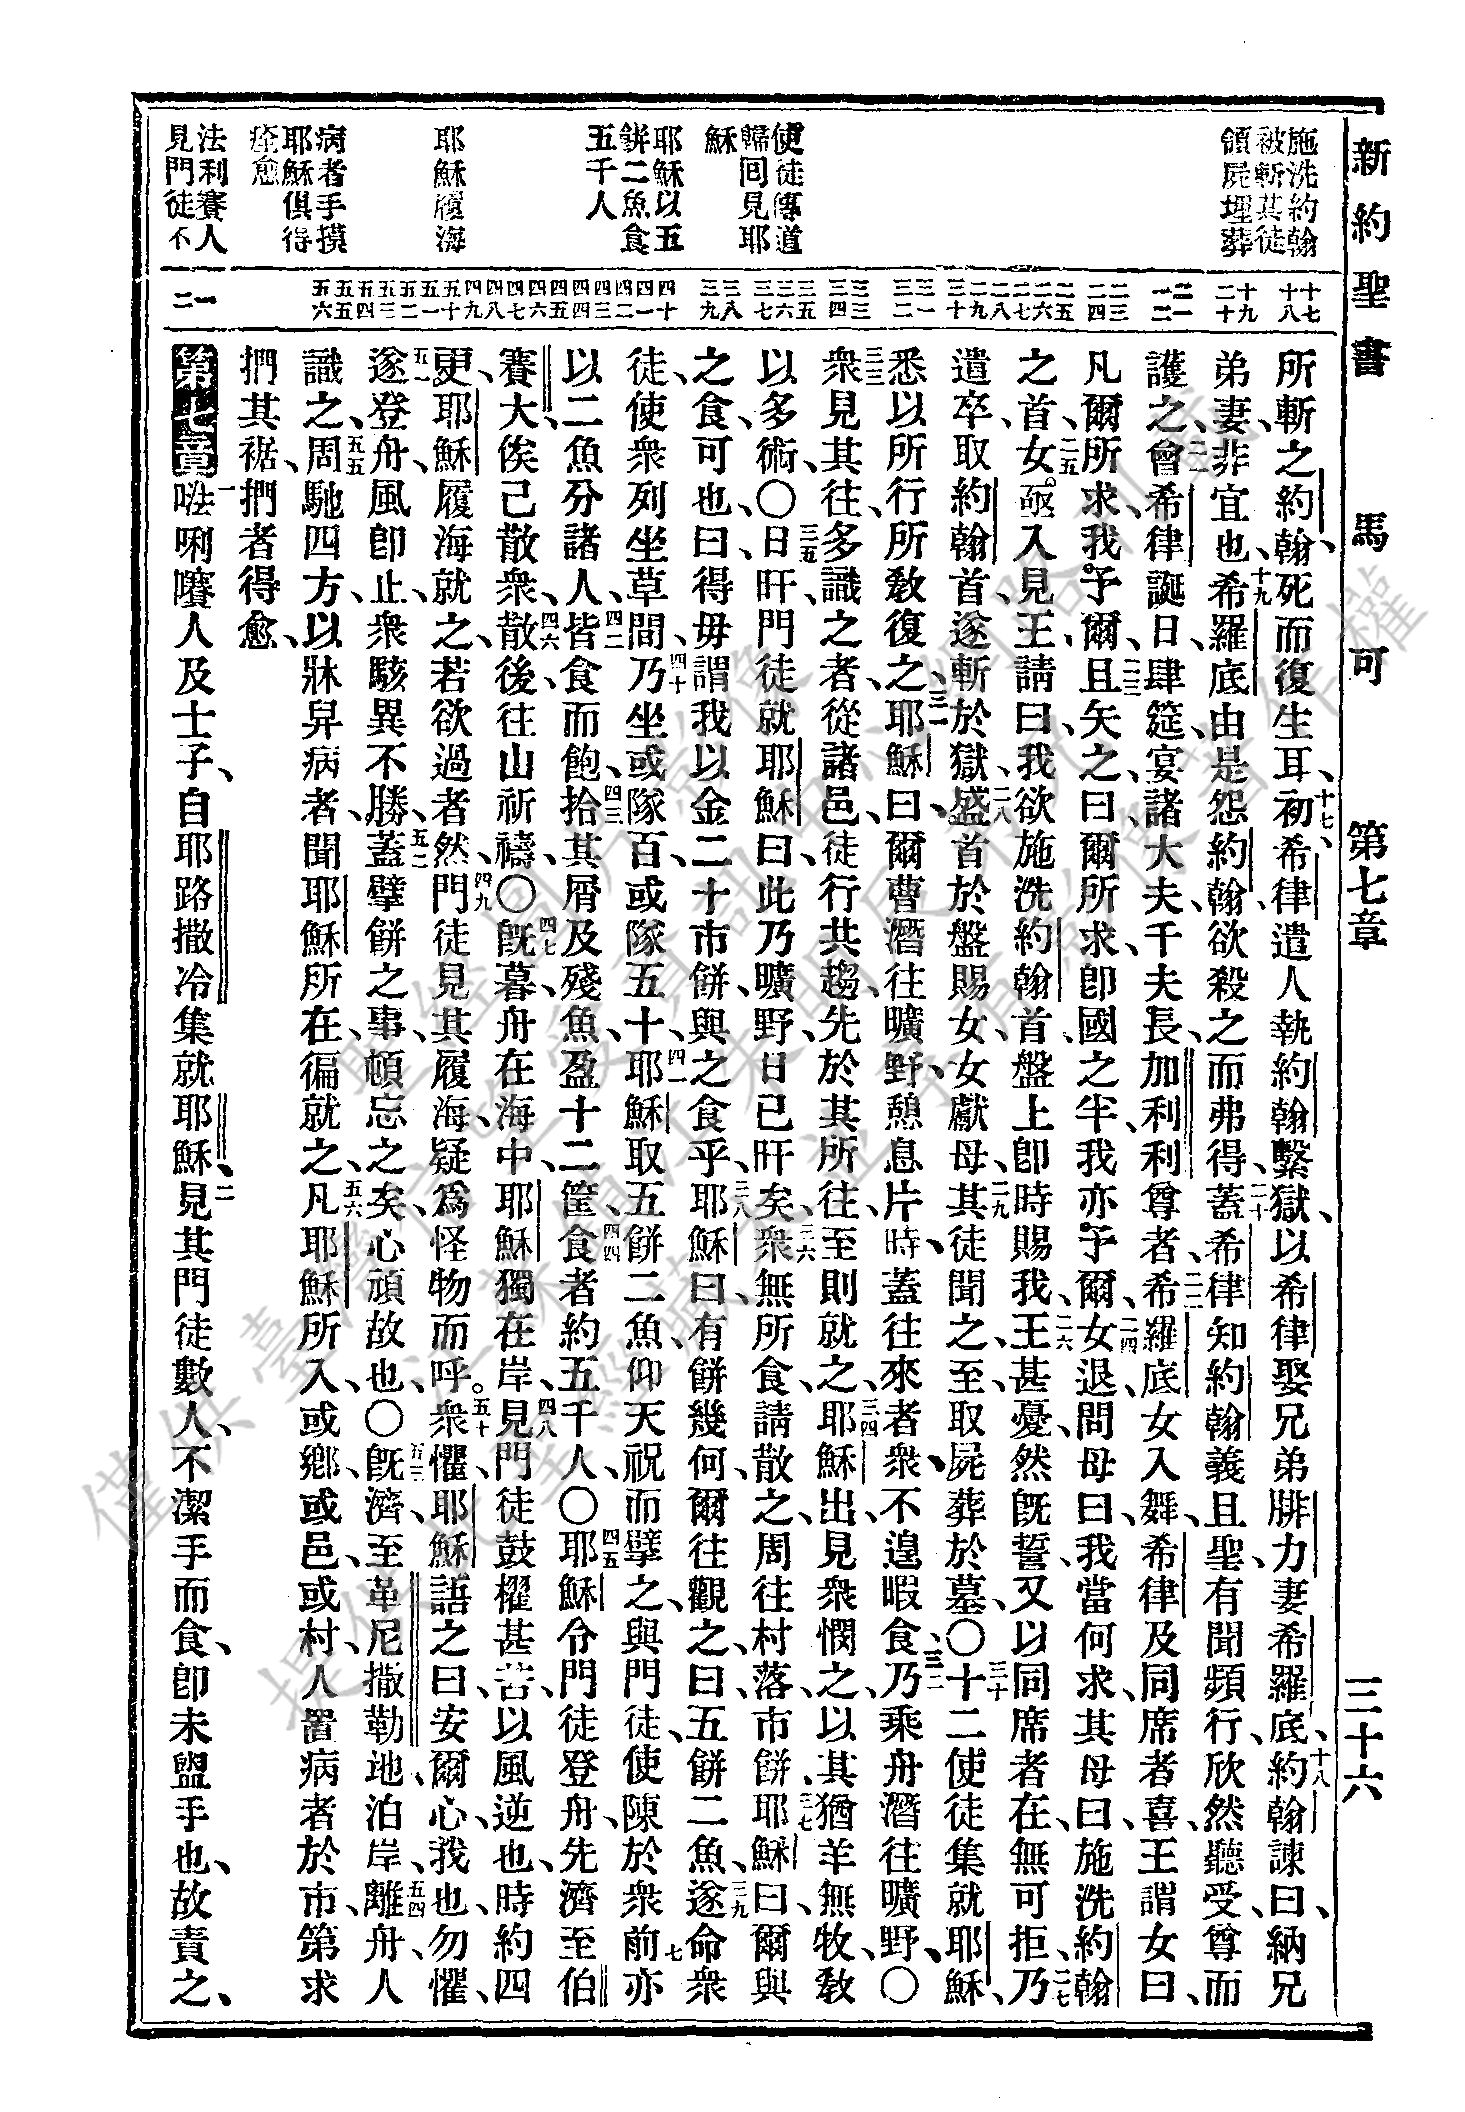 新約聖書 馬可 第七章 三十六
施洗約翰
被斬其徒
領屍埋葬
使徒傳道
歸回見耶
穌
耶穌以五
餅二魚食
五千人
耶穌履海
病者手摸
耶穌俱得
痊愈
法利賽人
見門徒不
十七
十八
十九
二十
二一
二二
二三
二四
二五
二六
二七
二八
二九
三十
三一
三二
三三
三四
三五
三六
三七
三八
三九
四十
四一
四二
四三
四四
四五
四六
四七
四八
四九
五十
五一
五二
五三
五四
五五
五六
一
二
所斬之約翰、死而復生耳、十七初、希律遣人執約翰繫獄、以希律娶兄弟腓力妻希羅底、十八約翰諫曰、納兄
弟妻、非宜也、十九希羅底由是怨約翰、欲殺之而弗得、二十蓋希律知約翰義且聖、有聞頻行、欣然聽受、尊而
護之、二一會希律誕日、肆筵宴諸大夫、千夫長、加利利尊者、二二希羅底女入舞、希律及同席者喜、王謂女曰、
凡爾所求、我予爾、二三且矢之曰、爾所求、卽國之半、我亦予爾、二四女退、問母曰、我當何求、其母曰、施洗約翰
之首、二五女亟入見王、請曰、我欲施洗約翰首、盤上卽時賜我、二六王甚憂、然旣誓、又以同席者在、無可拒、二七乃
遣卒、取約翰首、遂斬於獄、二八盛首於盤賜女、女獻母、二九其徒聞之、至取屍葬於墓、〇三十十二使徒集就耶穌、
悉以所行所敎復之、三一耶穌曰、爾曹潛往曠野、憩息片時、蓋往來者衆、不遑暇食、三二乃乘舟潛往曠野、〇
三三衆見其往、多識之者、從諸邑、徒行共趨、先於其所往、至則就之、三四耶穌出、見衆憫之、以其猶羊無牧、敎
以多術、〇三五日旰、門徒就耶穌曰、此乃曠野、日已旰矣、三六衆無所食、請散之、周往村落、市餅、三七耶穌曰、爾與
之食可也、曰、得毋謂我以金二十市餅、與之食乎、三八耶穌曰、有餅幾何、爾往觀之、曰、五餅二魚、三九遂命衆
徒、使衆列坐草間、四十乃坐、或隊百、或隊五十、四一耶穌取五餅二魚、仰天祝而擘之、與門徒、使陳於衆前、亦
以二魚分諸人、四二皆食而飽、四三拾其屑及殘魚、盈十二筐、四四食者約五千人、〇四五耶穌令門徒登舟、先濟至伯
賽大、俟己散衆、四六散後、往山祈禱、〇四七旣暮、舟在海中、耶穌獨在岸、四八見門徒鼓櫂甚苦、以風逆也、時約四
更、耶穌履海就之、若欲過者然、四九門徒見其履海、疑爲怪物而呼、五十衆懼、耶穌語之曰、安爾心、我也、勿懼、
五一遂登舟、風卽止、衆駭異不勝、五二蓋擘餅之事、頓忘之矣、心頑故也、〇五三旣濟、至革尼撒勒地、泊岸、五四離舟、人
識之、五五周馳四方、以牀舁病者、聞耶穌所在、徧就之、五六凡耶穌所入、或鄉、或邑、或村、人置病者於市、第求
捫其裾、捫者得愈、
第七章 一㗏唎㘔人及士子、自耶路撒冷集就耶穌、二見其門徒數人、不潔手而食、卽未盥手也、故責之、